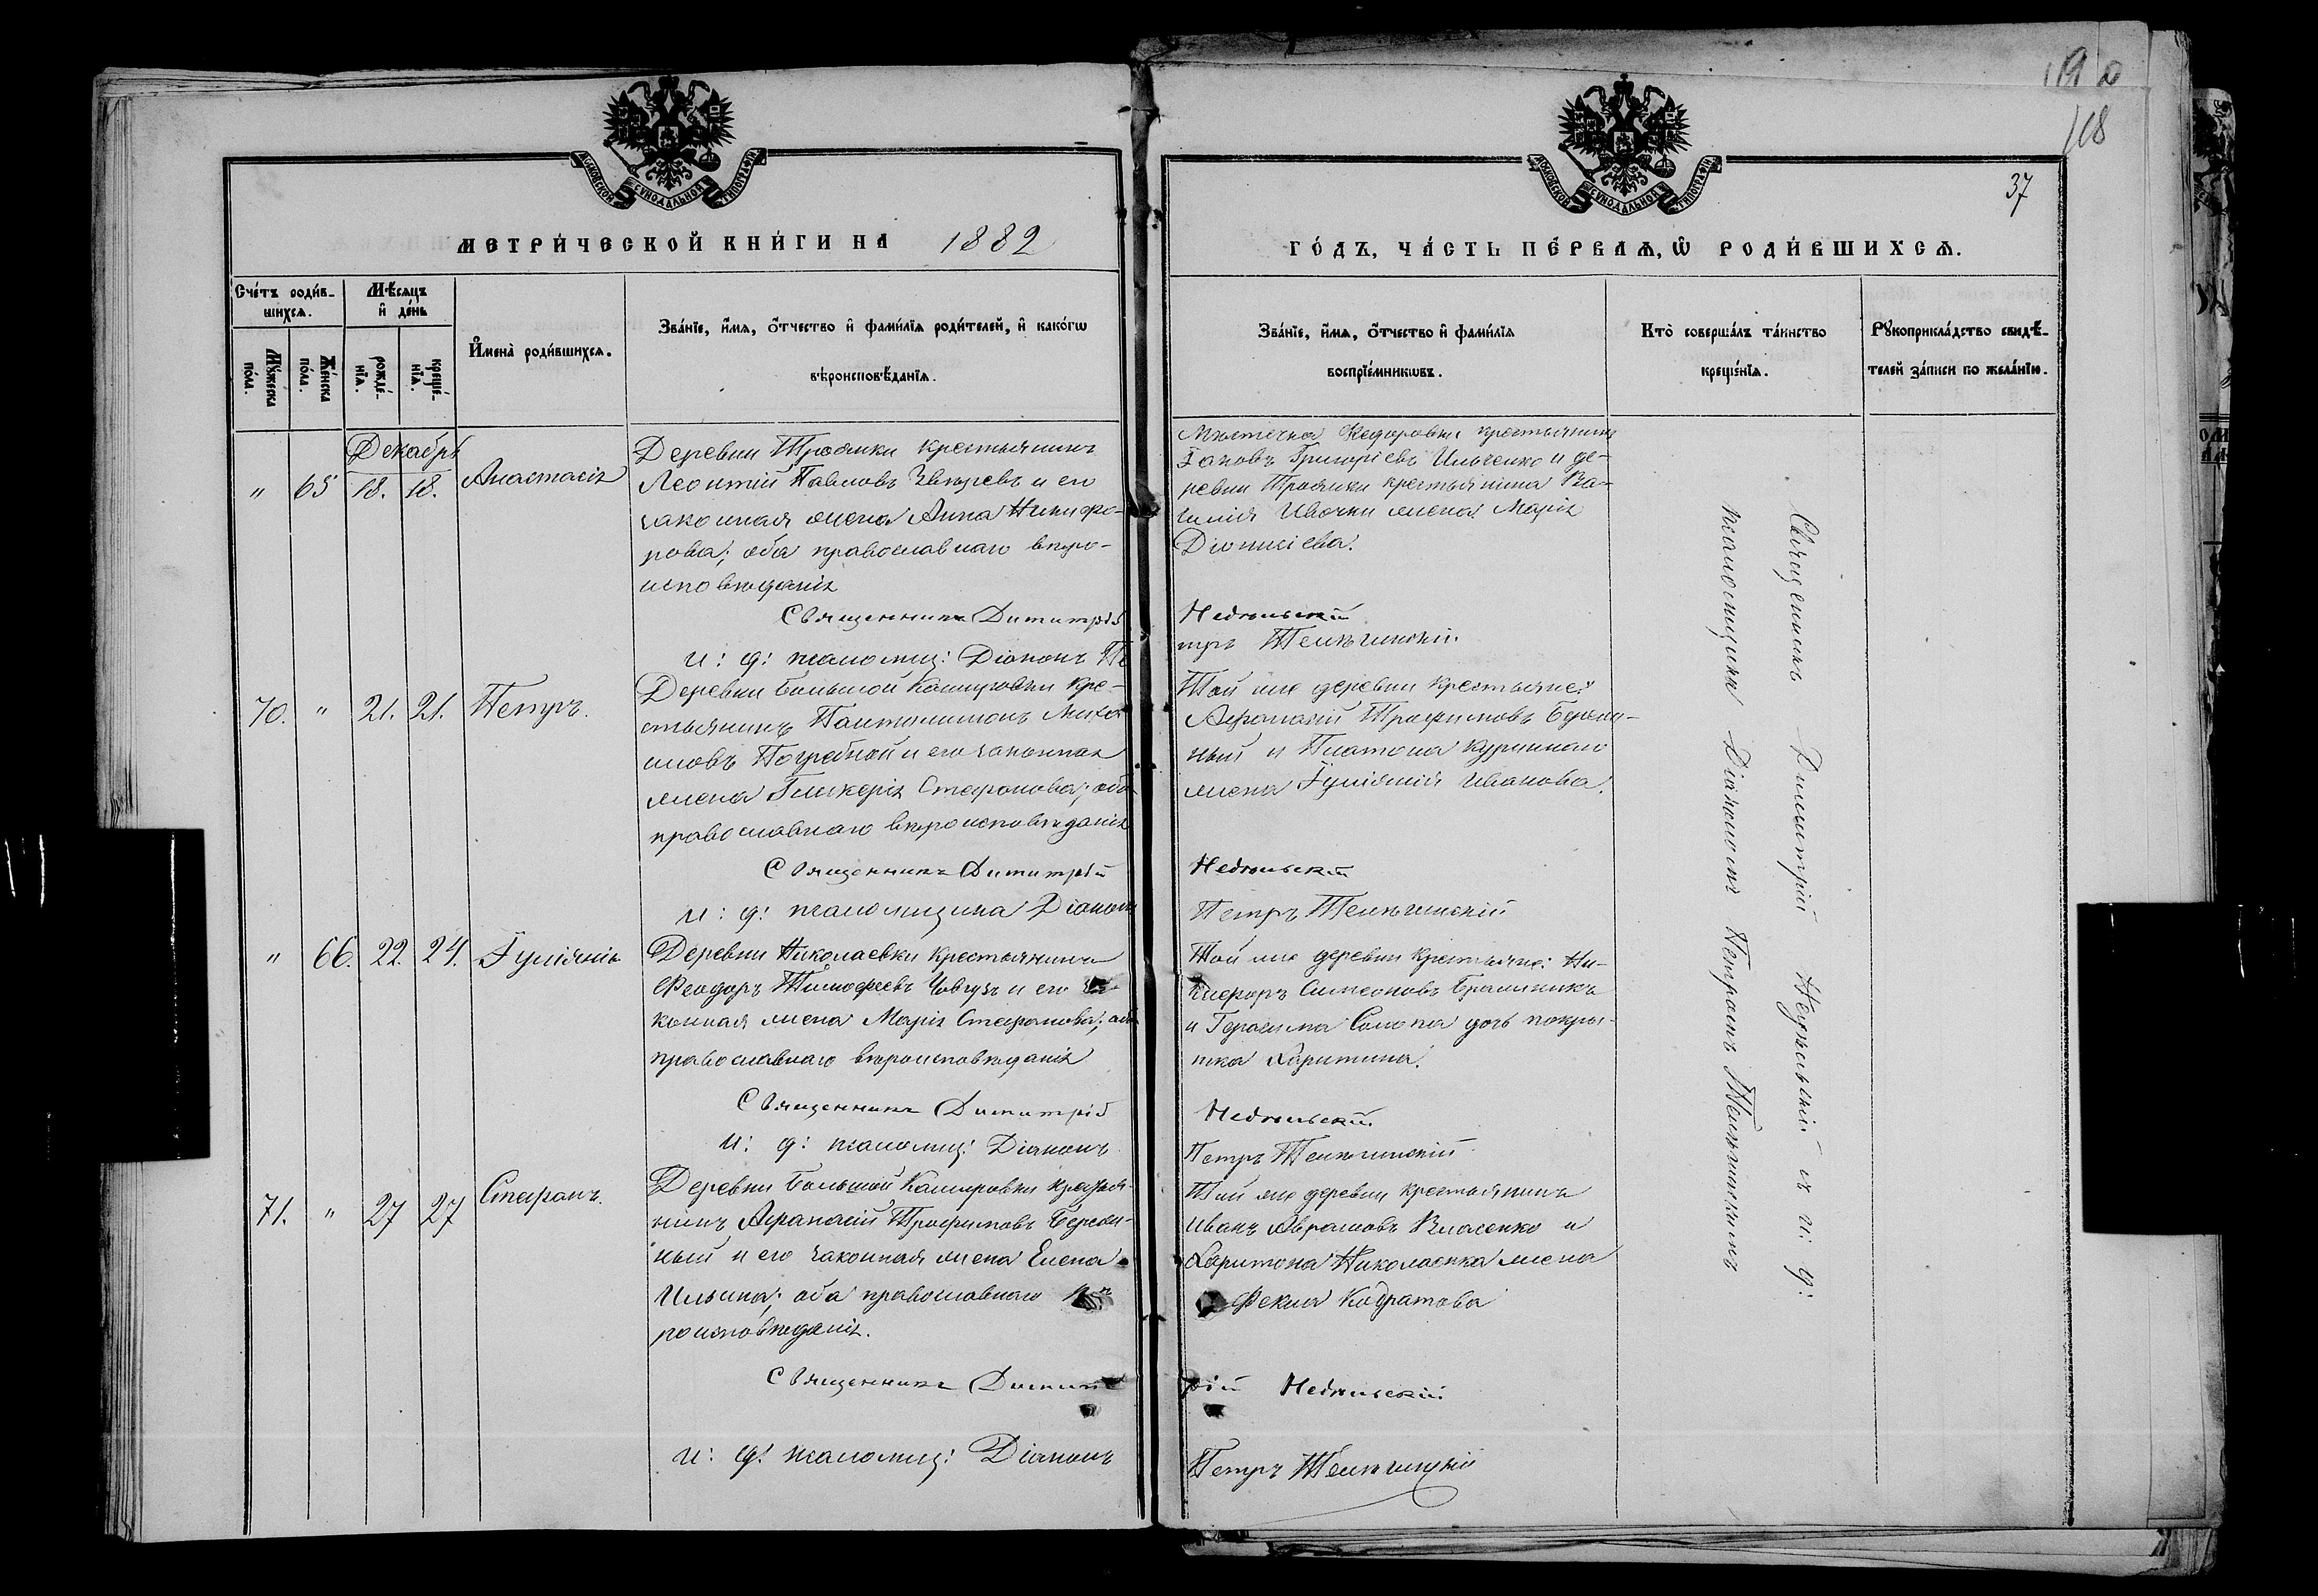 108
37
МОСКОВСКОЙ СУНОДАЛЬНОЙ ТИПОГРАФІИ
МОСКОВСКОЙ СУНОДАЛЬНОЙ ТИПОГРАФІИ
МЕТРИ́ЧЕСКОЙ КНИ́ГИ НА 1882
ГО́ДЪ, ЧА́СТЬ ПЕ́РВАѦ, Ѽ РОДИ́ВШИХСѦ.
Сче́тъ роди́в-
шихсѧ.
Мѣ́сѧцъ
и҆ де́нь
Мꙋ́жеска
по́ла.
Же́нска
по́ла.
рожде́-
нїѧ.
креще́-
нїѧ.
И҆мена̀ роди́вшихсѧ.
Зва́нїе, и҆́мѧ, о҆́тчество и҆ фами́лїѧ роди́телей, и҆ како́гѡ
вѣроисповѣ́данїѧ.
Зва́нїе, и҆́мѧ, о҆́тчество и҆ фами́лїѧ
воспрїе́мникѡвъ.
Кто̀ соверша́лъ та́инство
креще́нїѧ.
Рꙋкоприкла́дство свидѣ́-
телей за́писи по жела́нїю.
Декабрь
" 65 18. 18. Анастасія
Деревни Троянки крестьянинъ
Леонтій Павловъ Звѣревъ и его
законная жена Анна Никифо-
рова; оба православнаго вѣро-
исповѣданія
Священникъ Димитрій
и: д: псаломщ: Діаконъ Пе
Мѣстечка Федоровки крестьянинъ
Іаковъ Григоріевъ Ильченко и де-
ревни Троянки крестьянина Ва-
силія Ивочки жена Марія
Діонисіева.
Недѣльскій
тръ
70. " 21. 21. Петръ.
Деревни Большой Кашировки кре-
стьянинъ Пантелимонъ Миха
иловъ Погребной и его законная
жена Гликерія Стефанова; оба
православнаго вѣроисповѣданія
Священникъ Димитрій
и: д: псаломщика Діаконъ
Той же деревни крестьяне:
Афанасій Трофимовъ Бережи-
ный и Платона Куриннаго
жена Іуліянія Иванова.
Недѣльскій
Петръ
" 66. 22. 24. Іуліянія
Деревни Николаевки крестьянинъ
Феодоръ Тимофеевъ Човгузъ и его за-
конная жена Марія Стефанова; оба
православнаго вѣроисповѣданія
Священникъ Димитрій
и: д: псаломщ: Діаконъ
Той же деревни крестьяне: Ни-
кифоръ Симеоновъ Бражникъ
и Герасима Солопа дочь покры-
тка Харитина.
Недѣльскій
Петръ
71. " 27 27 Стефанъ.
Деревни Большой Кашировки крестья-
нинъ Афанасій Трофимовъ Бережи-
ный и его законная жена Елена
Ильина; оба православнаго вѣ-
роисповѣданія.
Священникъ Димит
и: д: псаломщ: Діаконъ
Той же деревни крестьянинъ
Иванъ Аврамовъ Власенко и
Харитона Николаенка жена
Фекла Кодратова
рій Недѣльскій
Петръ
Священникъ Димитрій Недѣльскій съ и: д:
псаломщика Діакономъ Петромъ